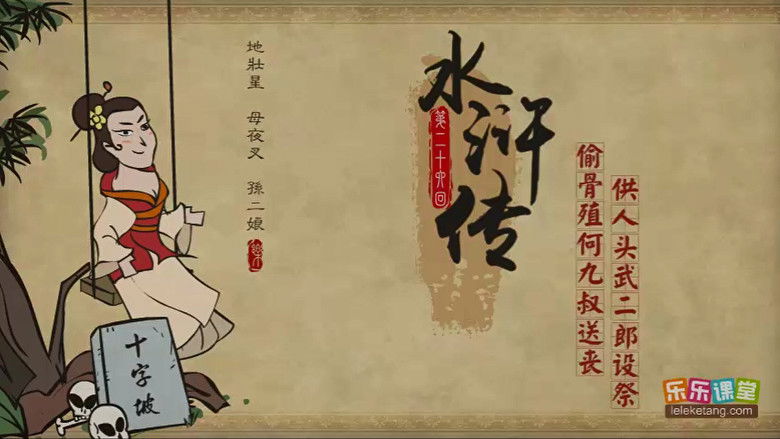 地壯星 母夜叉 孫二娘
水浒传
第二十六回
偷骨殖何九叔送丧
供人头武二郎设祭
十字坡
乐乐课堂
leleketang.com